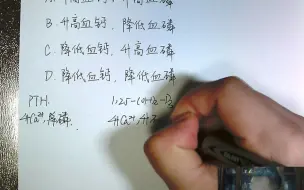 升高血钙、升高血磷
B. 升高血钙、降低血磷
C. 降低血钙、升高血磷
D. 降低血钙、降低血磷
PTH
1,25-(OH)2-D3
升Ca2+,降磷.
升Ca2+,升